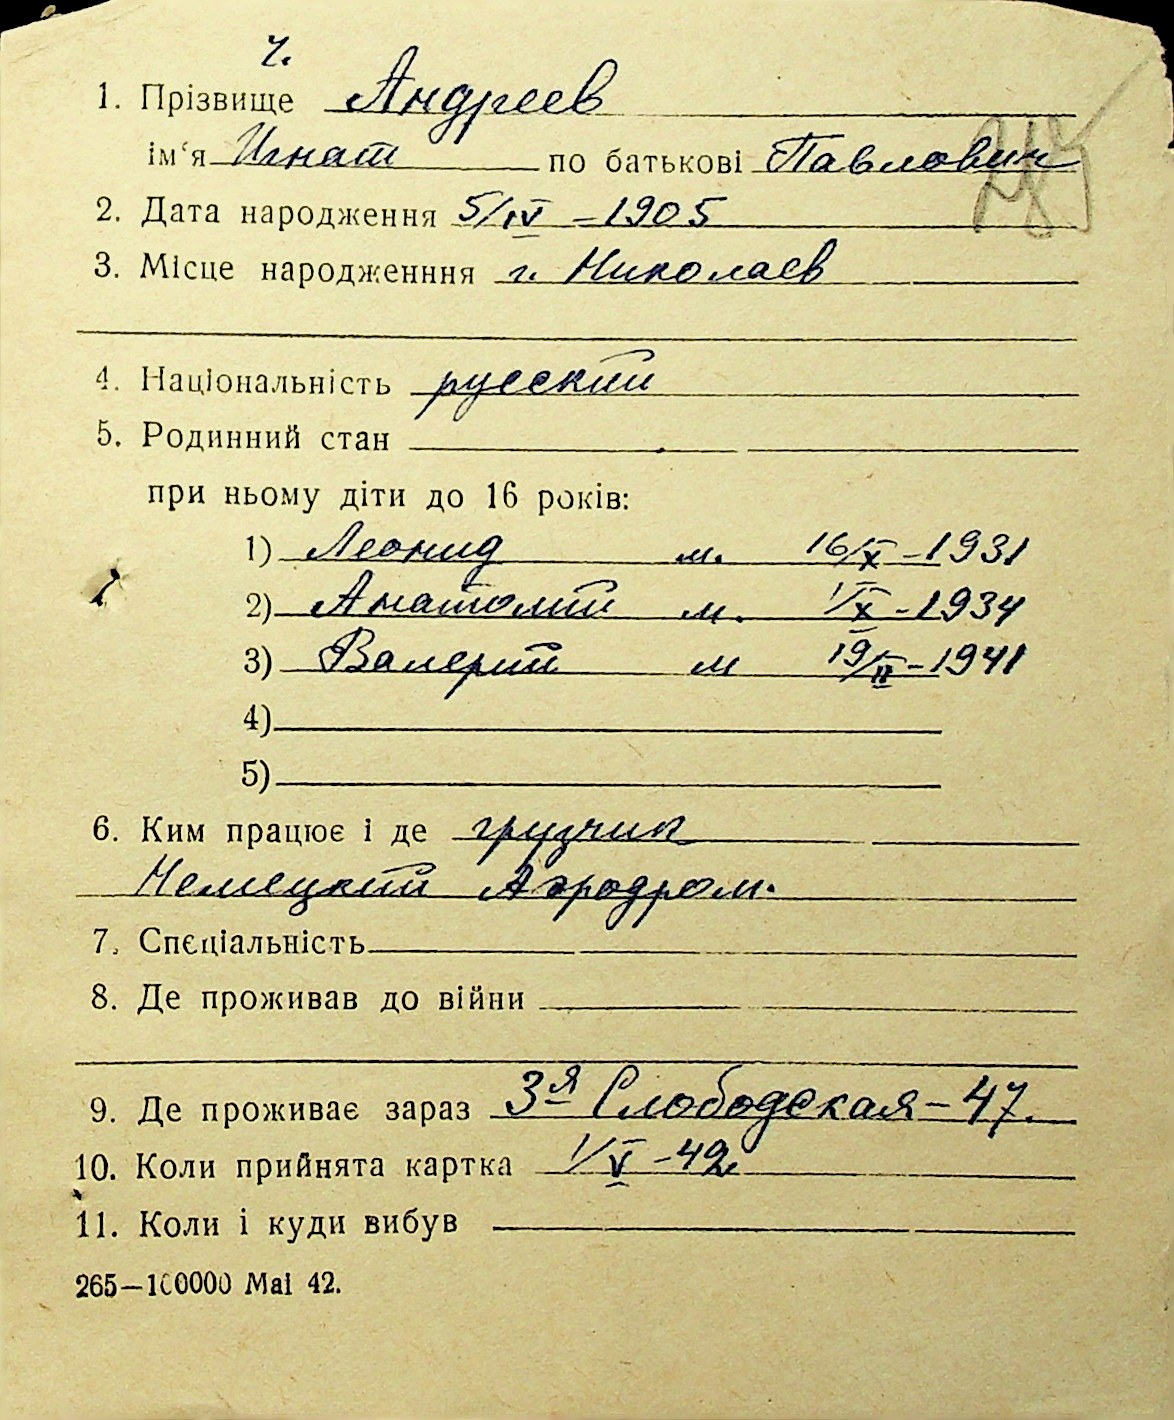 ч.
1. Прізвище Андреев
ім‘я Игнат по батькові Павлович
2. Дата народження 5/IV – 1905
3. Місце народженння г. Николаев
4. Національність русский
5. Родинний стан
при ньому діти до 16 років:
1) Леонид м. 16/X – 1931
2) Анатолий м. 1/X - 1934
3) Валерий м 19/II – 1941
4)
5)
6. Ким працює і де грузчик
Немецкий Аэродром.
7. Спеціальність
8. Де проживав до війни
9. Де проживає зараз 3я Слободская – 47.
10. Коли прийнята картка 1/V - 42
11. Коли і куди вибув
265—100000 Mai 42.